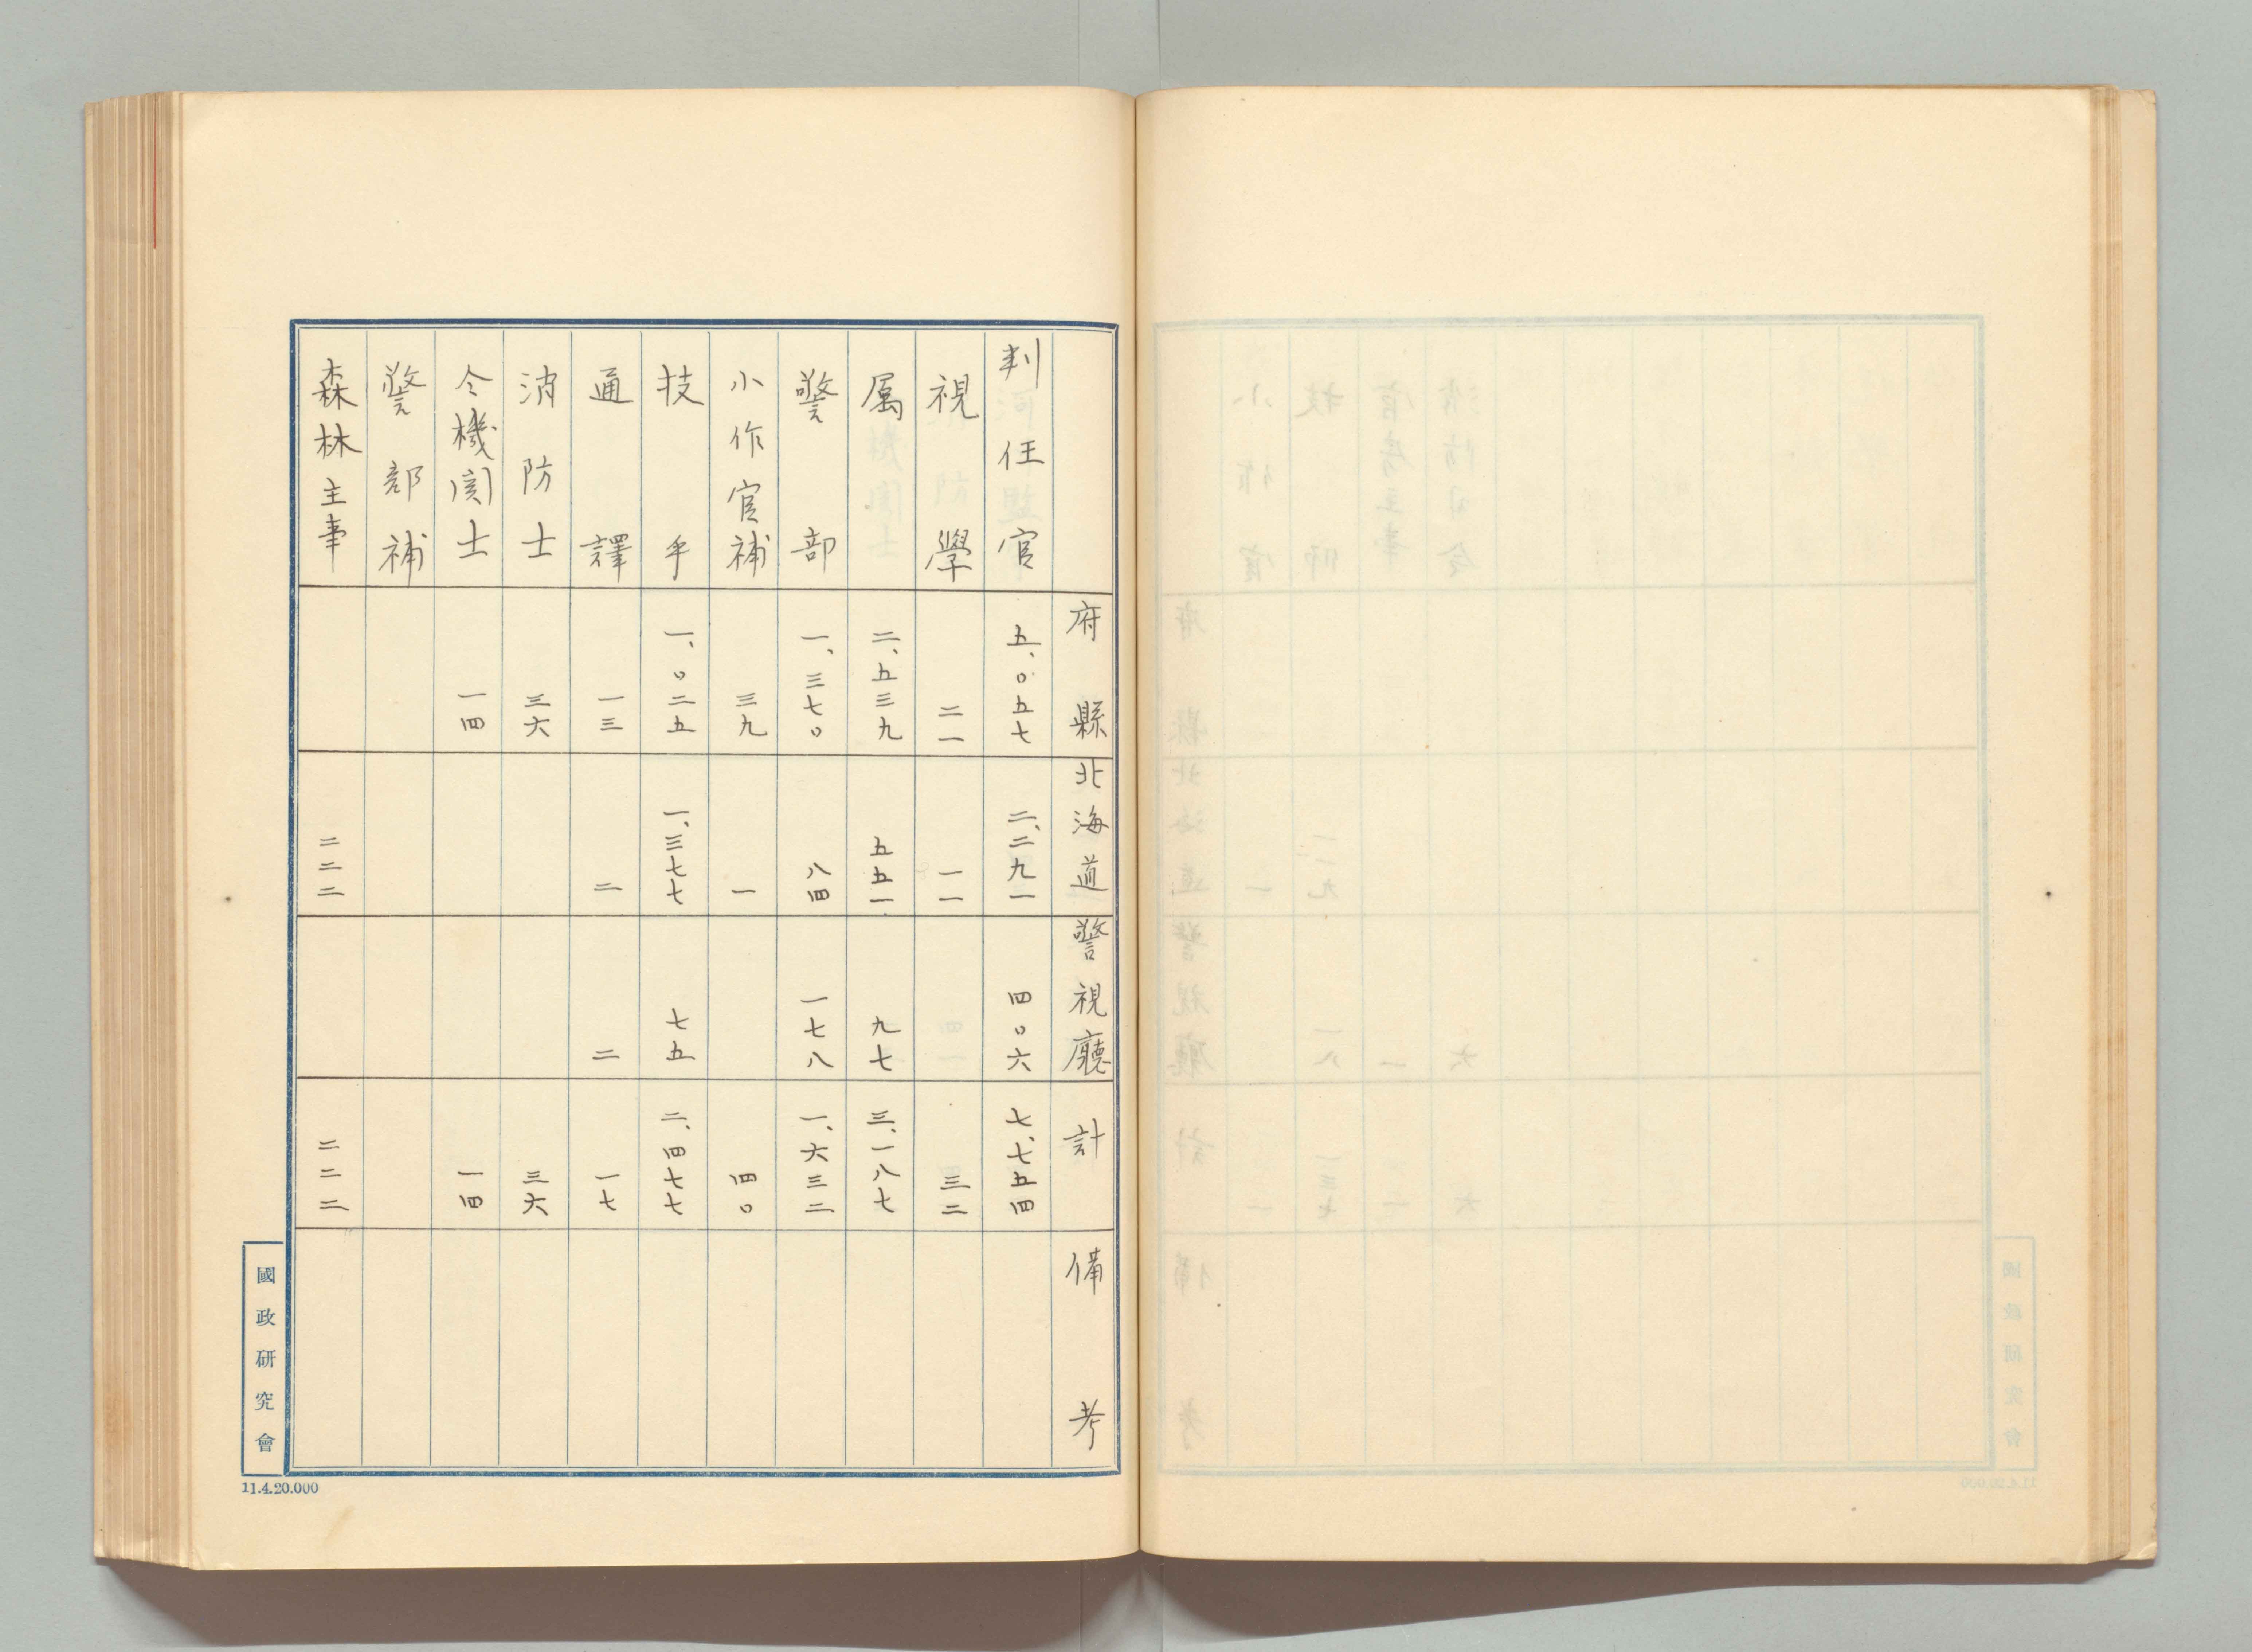 府縣 北海道 警視廳 計 備考
判任官 五、〇五七 二、二九一 四〇六 七、七五四
視學 二一 一一 三二
属 二、五三九 五五一 九七 三、一八七
警部 一、三七〇 八四 一七八 一、六三二
小作官補 三九 一 四〇
技手 一、〇二五 一、三七七 七五 二、四七七
通譯 一三 二 二 一七
消防士 三六 三六
仝機関士 一四 一四
警部補
森林主事 二二二 二二二
國政研究會
11.4.20.000